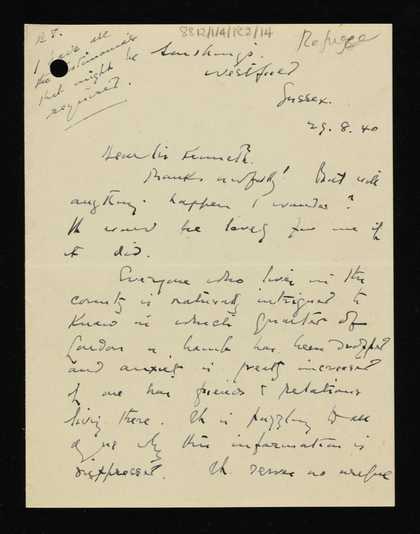 P.S.
I have all
the testimonials
that might be
required.
8812/1/4/PC2/14
Refugee
Westfield
Sussex.
29.8.40
Dear Sir Kenneth.
Thanks awfully! But will
anything happen I wonder?
It would be lovely for me if
it did.
Everyone who lives in the
country is naturally intrigued to
know in which quarter of
London a bomb has been dropped
and anxiety is greatly increased
if one has friends & relations
living there. It is puzzling to all
of us why this information is
suppressed. It serves no useful